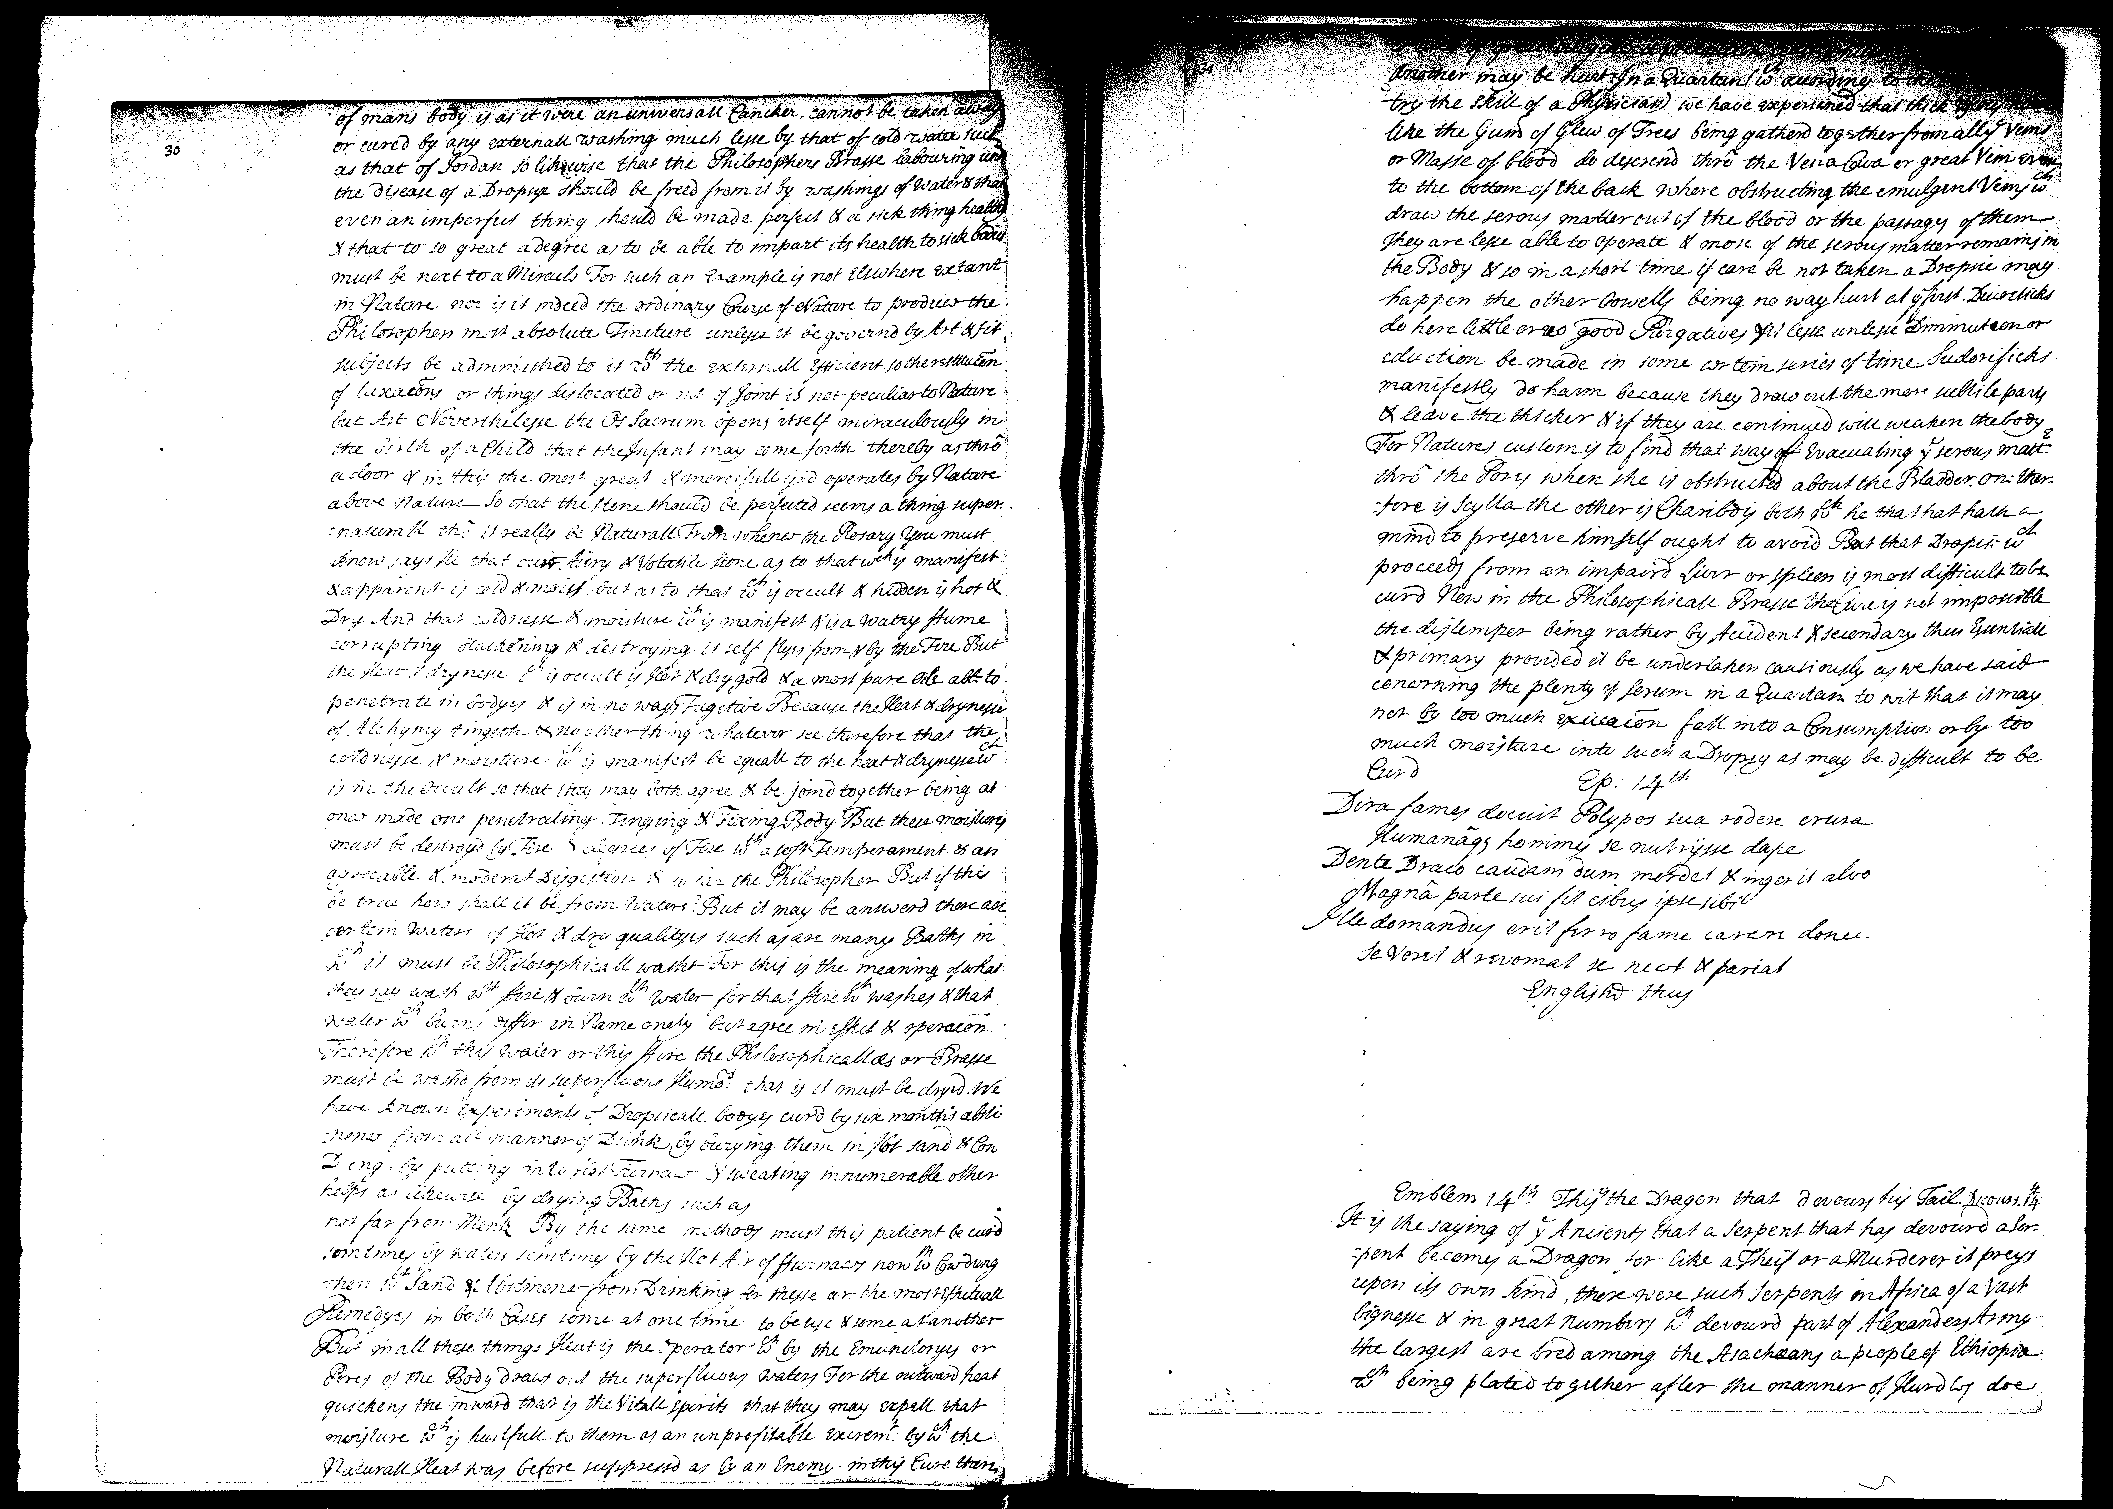 30
of mans body is as it were an universall Cancker cannot be taken away
or cured by any externall washing much lesse by that of cold water such
as that of Jordan so likewise that the Philosophers Brasse labouring und
the disease of a Dropsye should be freed from it by washings of Water & that
even an imperfect thing should be made perfect & a sick thing healthy
& that to so great a degree as to be able to impart its health to sick bodies
must be next to a Miracle For such an Example is not Elswhere extant
in Nature nor is it indeed the ordinary Course of Nature to produce the
Philosophers most absolute Tincture unlesse it be governd by Art & fit
subjects be administred to it wth the externall Efficient so the restitucōn
of luxacōns or things dislocated or out of Joint is not peculiar to Nature
but Art Neverthelesse the Os Sacrum opens itself miraculously in
the birth of a Child that the Infant may come forth thereby as thrō
a door & in this the most great & mercifull God operates by Nature
above Nature So that the stone should be perfected seems a thing super:
:naturall thō it really be Naturall From whence the Rosary You must
know says he that our Airy & Volatile stone as to that wch is manifest
& apparent is cold & moist but as to that wch is occult & hidden is hot &
Dry And that coldnesse & moisture wch is manifest & is a watry fume
corrupting blackening & destroying it self flyes from & by the Fire But
the heat & drynesse wch is occult is Hot & dry gold & a most pure oile able to
penetrate in bodyes & is in no ways Fugitive Because the Heat & drynesse
of Alchymy tingeth & no other thing whatever see therefore that the
coldnesse & moisture wch is manifest be equall to the heat & drynesse wch
is in the Occult so that they may both agree & be joind together being at
once made one penetrating Tinging & Fixing Body But their moistures
must be destroyd by Fire & degrees of Fire wth a soft Temperament & an
agreeable & moderat Digestion & so far the Philosopher But if this
be true how shall it be from Waters? But it may be answerd there are
certein Waters of Hot & dry qualityes such as are many Baths in
wch it must be Philosophicall washt For this is the meaning of what
they say wash wth fire & burn wth water for that fire wch washes & that
water wch burns differ in Name onely but agree in effect & operacōn
Therefore wth this Water or this fire the Philosophicall æs or Brasse
must be washd from its superfluous Humōr that is it must be dryed We
have known Experiments of Dropsicall bodyes curd by six months absti
:nence from all manner of Drink by burying them in Hot sand & Cow
Dung by putting into Hot Furnace & sweating innumerable other
helps as likewise by drying Baths such as
not far from Mentz By the same methods must this patient be curd
somtimes by waters somtimes by the Hot Air of Furnaces now wth Cowdung
then wth Sand & Abstinence from Drinking for these are the most Effectuall
Remedyes in both Cases some at one time to be use & some at another
But in all these things Heat is the operator wch by the Emunctoryes or
Pores of the Body draws out the superfluous waters For the outward heat
quickens the inward that is the Vitall spirits that they may expell that
moisture wch is hurtfull to them as an unprofitable excremt by wch the
Naturall Heat was before suppressd as by an Enemy in this Cure there
Another may be hurt In a Quartan wch according to
try the skill of a Physician we have experienced that thick
like the Gum of Glew of Trees being gatherd together from all ye Veins
or Masse of blood do descend thrō the Vena Cava or great Vein even
to the bottom of the back where obstructing the emulgent Veins wch
draw the serous matter out of the blood or the passages of them
They are lesse able to operate & more of the serous matter remains in
the Body & so in a short time if care be not taken a Dropsie may
happen the other bowells being no way hurt at ye first. Diureticks
do here little or no good Purgatives yet lesse unlesse Diminution or
eduction be made in some certein series of time Sudorificks
manifestly do harm because they draw out the more subtile parts
& leave the thicker & if they are continued will weaken the body
For Natures custom is to find that way of Evacuating ye serous mattr
thrō the Pores when she is obstructed about the Bladder. One ther-
:fore is Scylla the other is Charibdis both wch he that hath a
mind to preserve himself ought to avoid But that Dropsie wch
proceeds from an impaird Liver or spleen is most difficult to be
curd Now in the Philosophicall Brasse the Cure is not impossible
the distemper being rather by Accident & secondary then Essentiall
& primary provided it be undertaken cautiously as we have said
concerning the plenty of serum in a Quartan to wit that it may
not by too much exiccacōn fall into a Consumption or by too
much moisture into such a Dropsy as may be difficult to be
Curd
Ep: 14th
Dira fames docuit Polypos sua rodere crura
Humanāqs homines se nutrisse dape
Dente Draco caudam dum mordet & ingerit alvo
Magnā parte sui fit cibus ipse sibi
Ille domandus erit ferro fame carcere donec
Se voret & revomat se necet & pariat
Englishd thus
Emblem 14th This the Dragon that devours his Tail Discours. 14th
It is the saying of ye Ancients that a Serpent that has devourd a Ser-
:pent becomes a Dragon for like a Theif or a Murderer it preys
upon its own kind, there were such Serpents in Africa of a Vast
bignesse & in great numbers wch devourd part of Alexanders Army
the largest are bred among the Asachæans a people of Ethiopia
wch being plated together after the manner of Hurdles doe